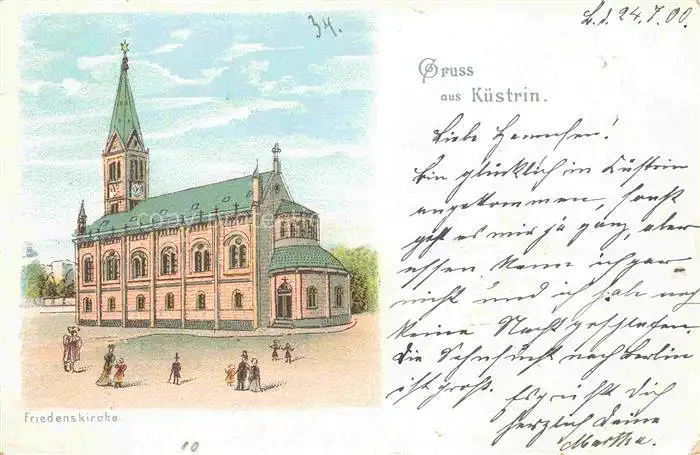 34.
B. d. 24.7.00.
Gruss
aus Küstrin.
Liebe
Bin glücklich in Küstrin
angekommen, sonst
geht es mir ja ganz, aber
essen kann ich gar
nicht und ich habe noch
keine Nacht geschlafen.
Die Sehnsucht nach Berlin
ist groß. Es grüßt Dich
herzlich Deine
Martha.
Friedenskirche
10